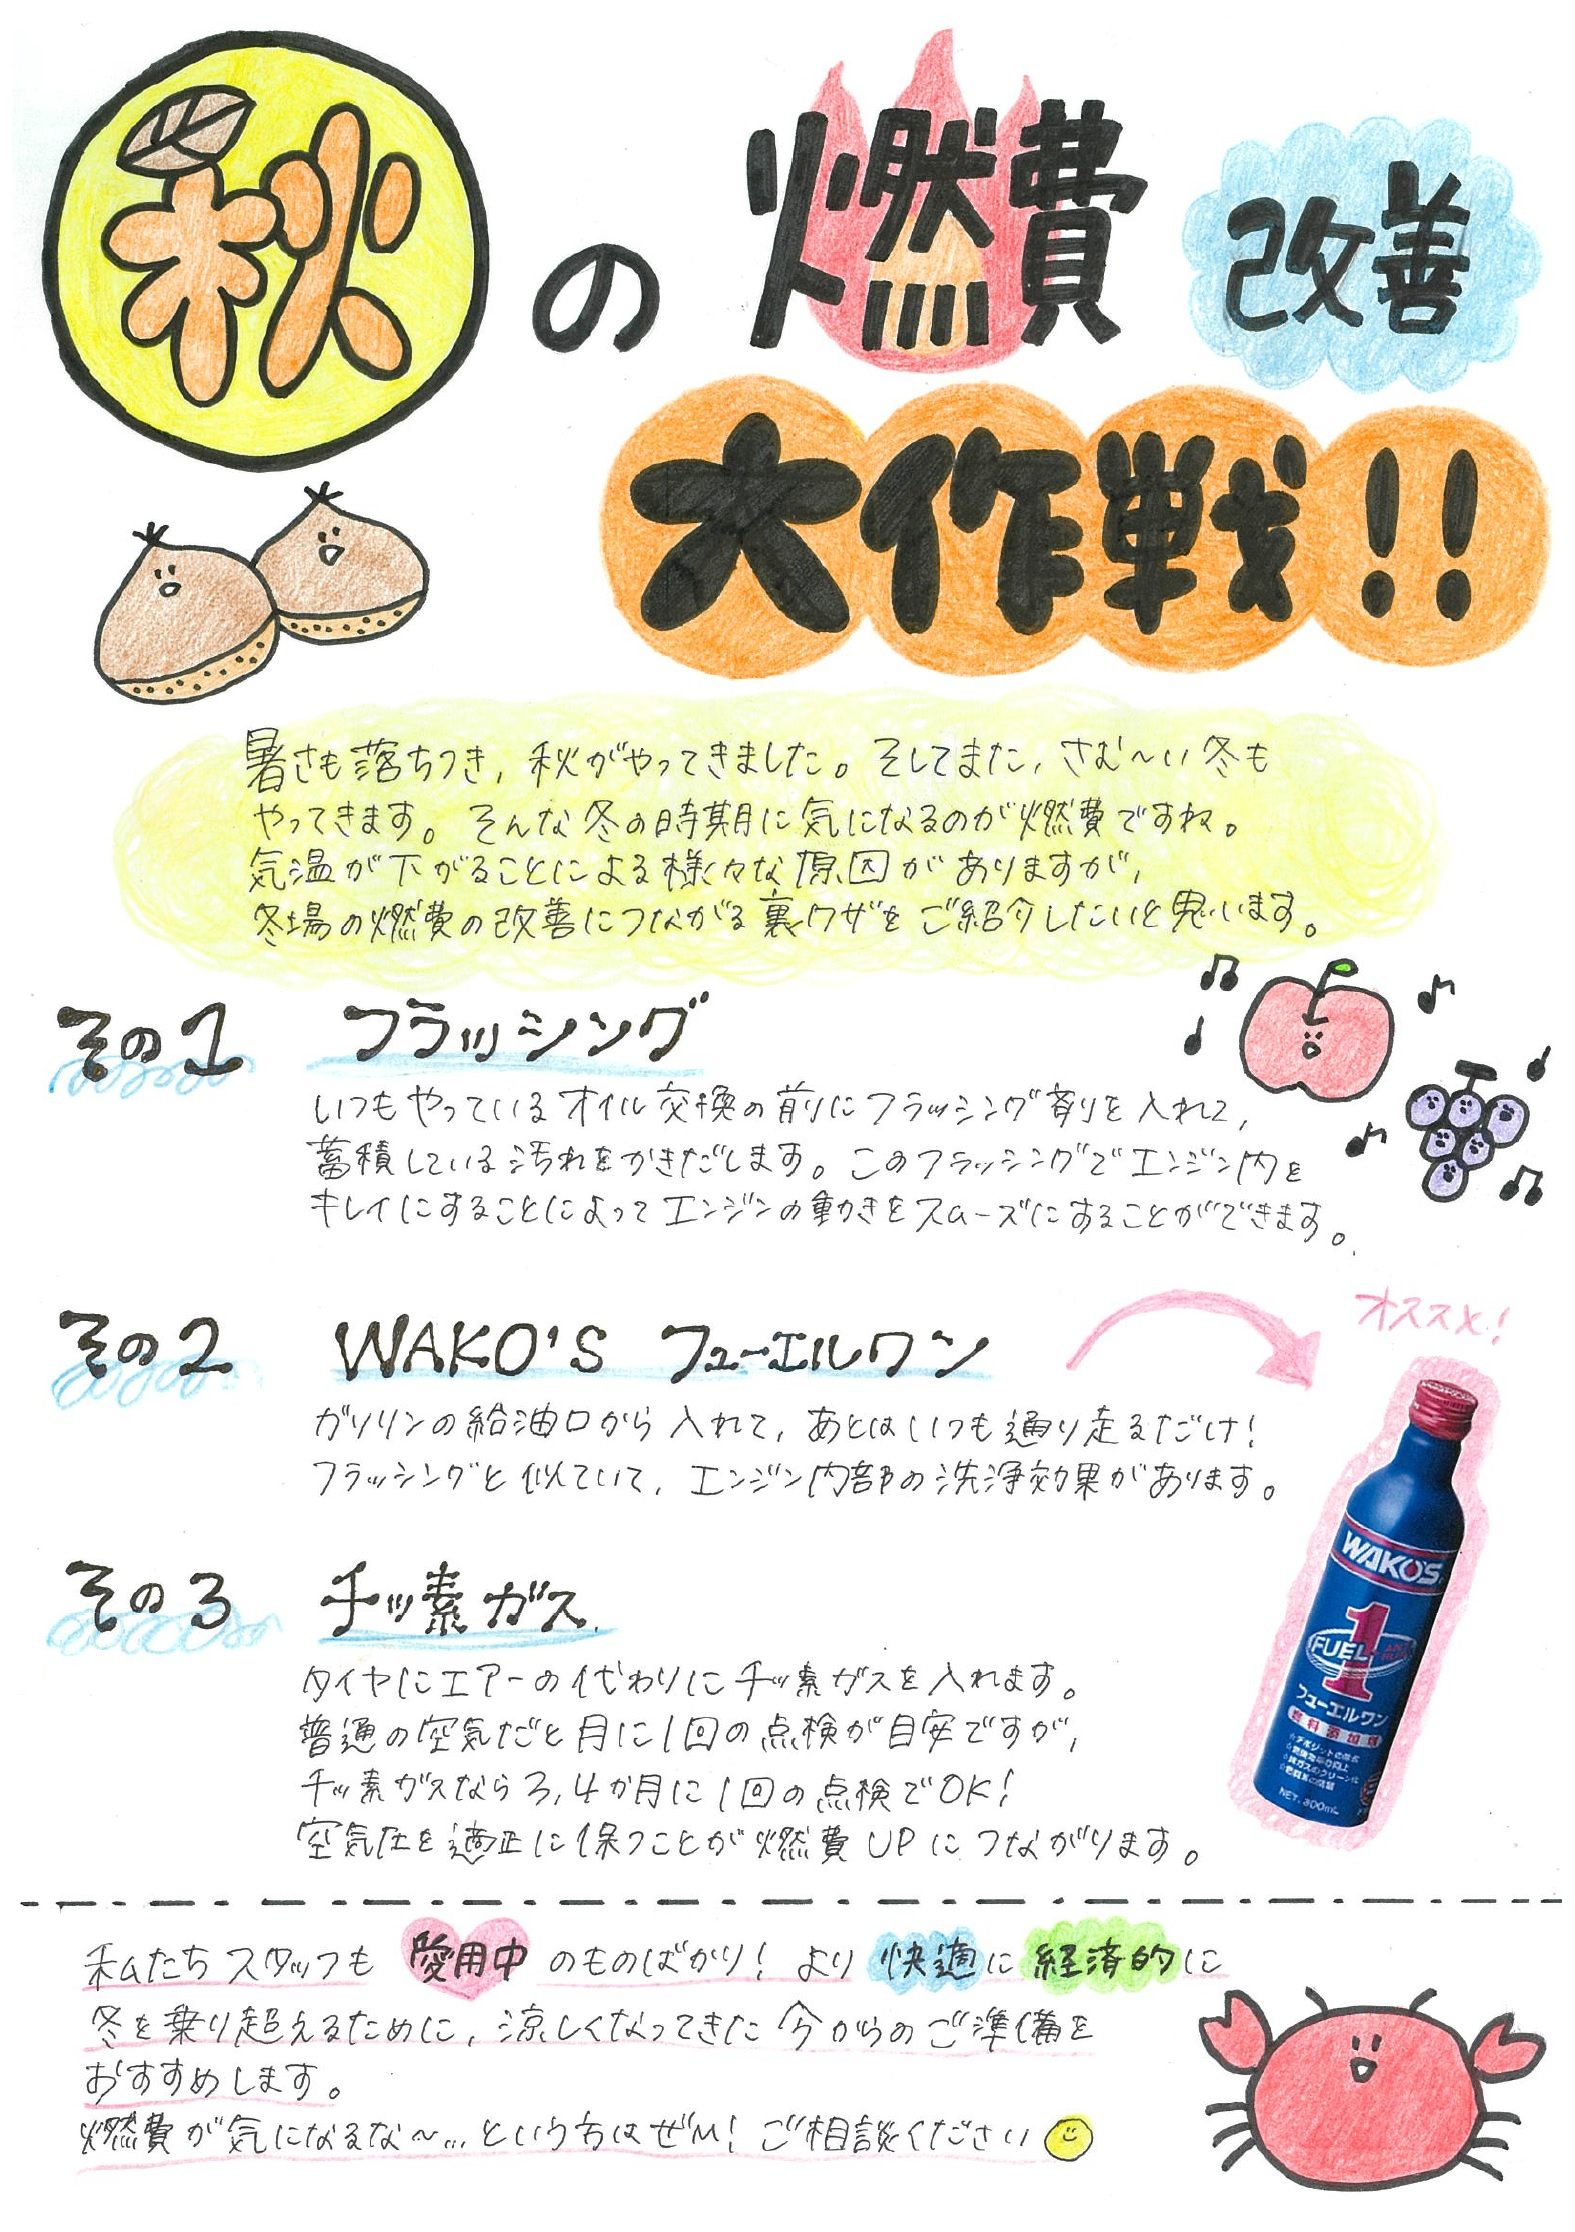 秋の燃費改善
大作戦!!
暑さも落ちつき、秋がやってきました。そしてまた、さむ〜い冬も
やってきます。そんな冬の時期に気になるのが燃費ですね。
気温が下がることによる様々な原因がありますが、
冬場の燃費の改善につながる裏ワザをご紹介したいと思います。
その1 フラッシング
いつもやっているオイル交換の前にフラッシング剤を入れて、
蓄積している汚れをかきだします。このフラッシングでエンジン内を
キレイにすることによってエンジンの動きをスムーズにすることができます。
その2 WAKO'S フューエルワン
オススメ!
ガソリンの給油口から入れて、あとはいつも通り走るだけ!
フラッシングと似ていて、エンジン内部の洗浄効果があります。
WAKO'S
1
FUEL
フューエルワン
燃料添加剤
NET. 300mL
その3 チッ素ガス
タイヤにエアーの代わりにチッ素ガスを入れます。
普通の空気だと月に1回の点検が目安ですが、
チッ素ガスなら3,4か月に1回の点検でOK!
空気圧を適正に保つことが燃費UPにつながります。
私たちスタッフも愛用中のものばかり!より快適に経済的に
冬を乗り超えるために、涼しくなってきた今からのご準備を
おすすめします。
燃費が気になるな〜…という方はぜひ!ご相談ください